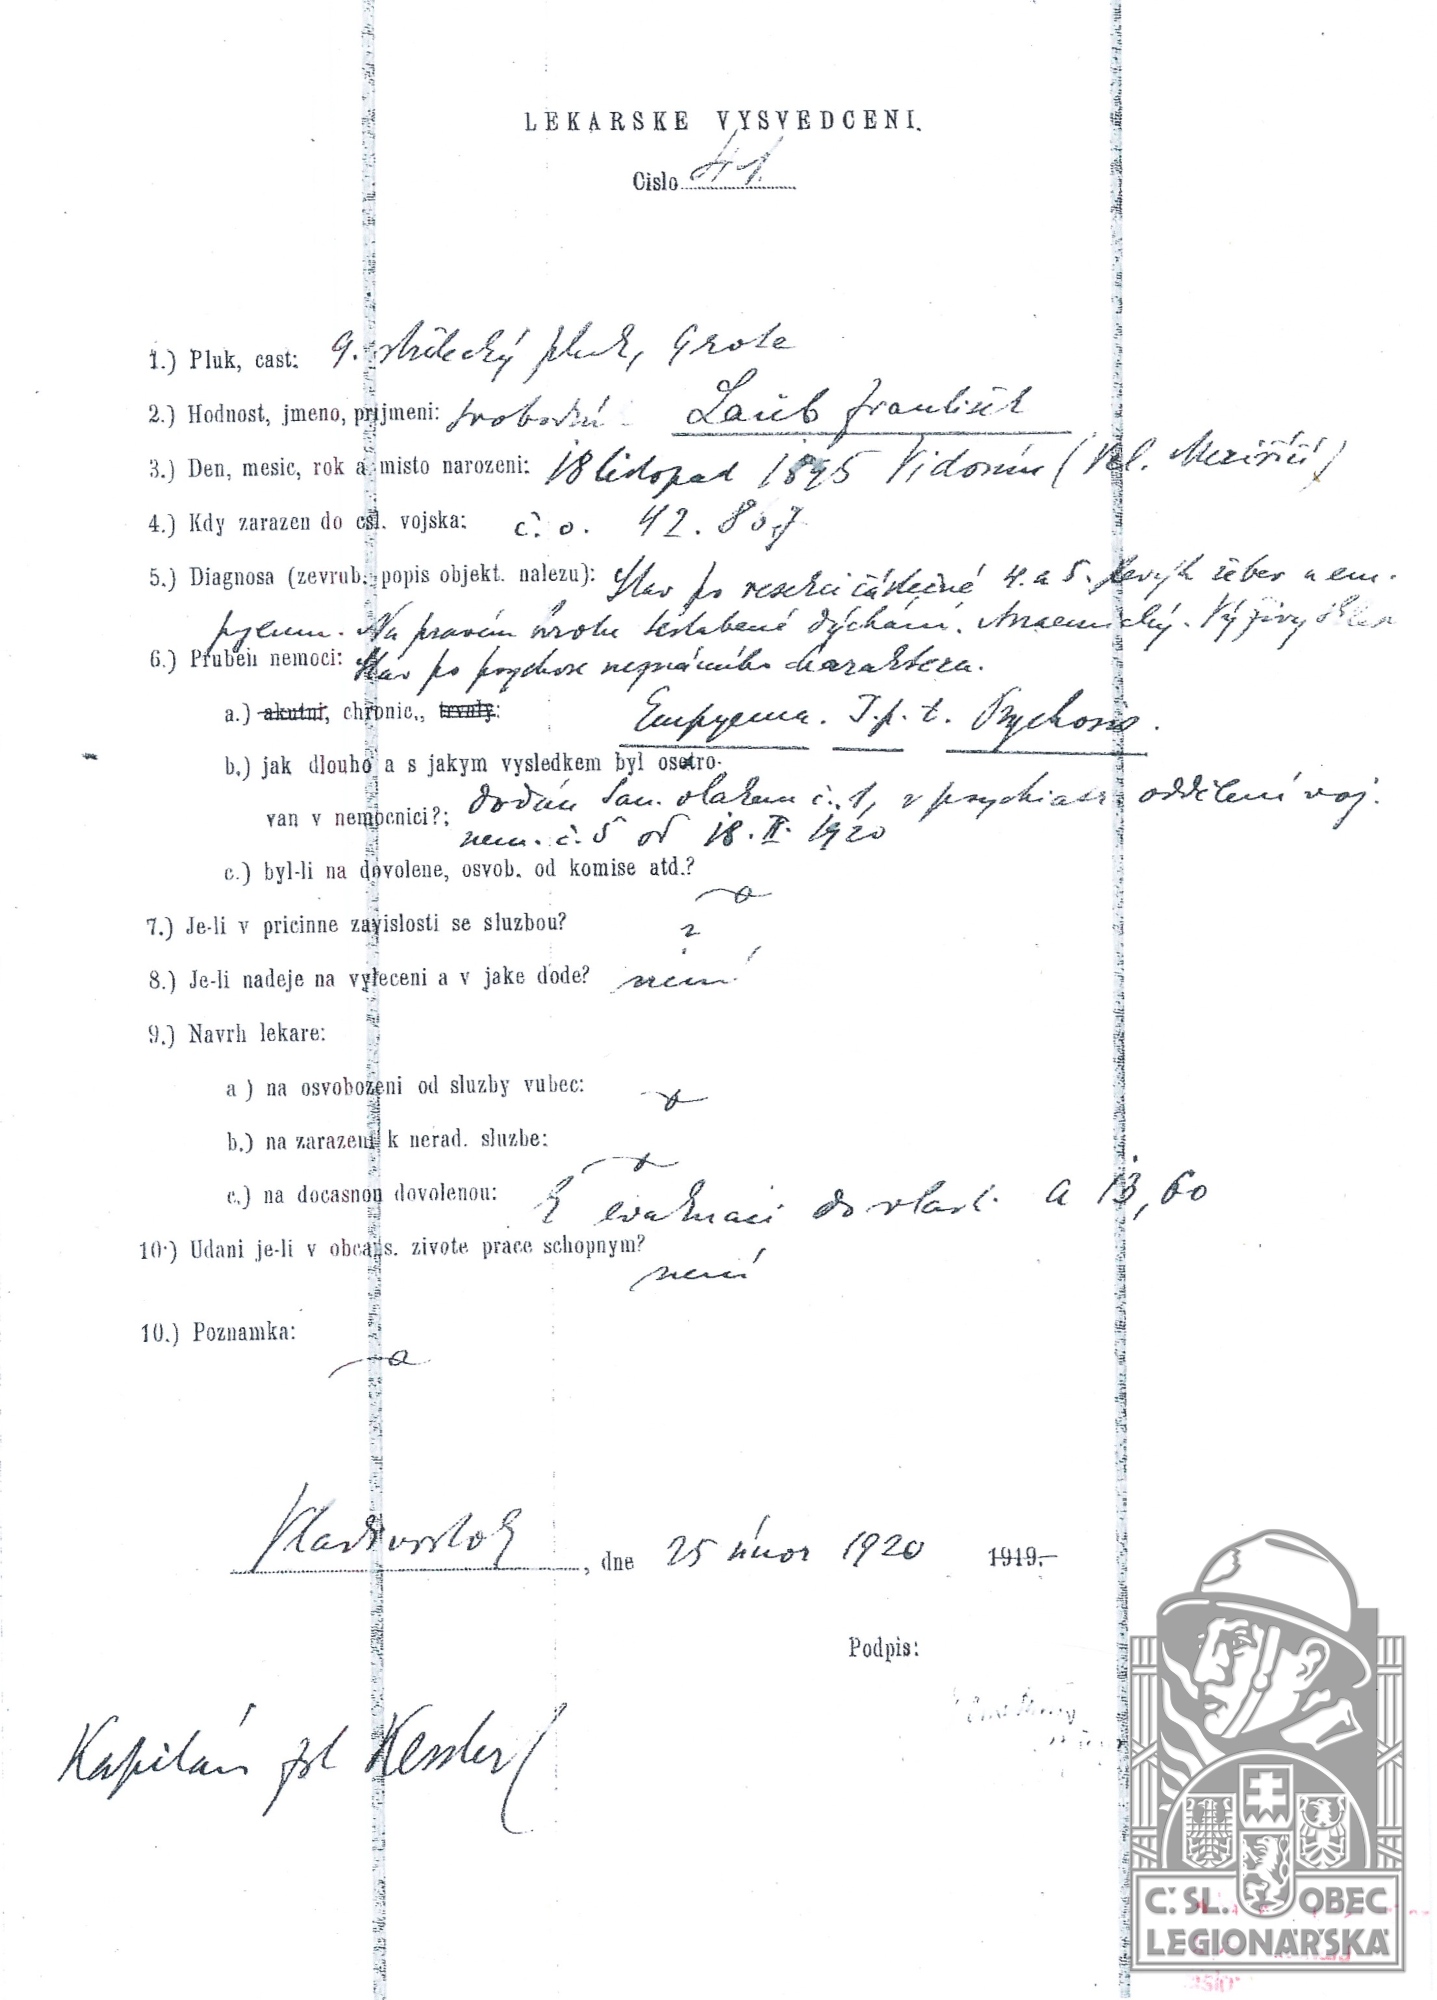 LEKARSKE VYSVEDCENI.
Cislo 41.
1.) Pluk, cast: 9. střelecký pluk, 9 rota
2.) Hodnost, jmeno, prijmeni: svobodník Laub František
3.) Den, mesic, rok a misto narozeni: 18 listopad 1895 Vidonín (Vel. Meziříčí)
4.) Kdy zarazen do csl. vojska: č. o. 42.807
5.) Diagnosa (zevrub. popis objekt. nalezu): Stav po resekci částečné 4. a 5. levých žeber a em-
pyemu. Na pravém hrotu seslabené dýchání. Anaemický. Výživy
6.) Prubeh nemoci: Stav po psychose neznámého charakteru.
a.) akutni, chronic,, trvaly: Empyema. T.p.t. Psychosis.
b.) jak dlouho a s jakym vysledkem byl osetro-
van v nemocnici?; dodán San. vlakem č. 1, v psychiatr. oddělení voj.
nem. č. 5 od 18. II. 1920
c.) byl-li na dovolene, osvob. od komise atd.?
7.) Je-li v pricinne zavislosti se sluzbou? ?
8.) Je-li nadeje na vyleceni a v jake dode? není
9.) Navrh lekare:
a ) na osvobozeni od sluzby vubec:
b.) na zarazeni k nerad. sluzbe:
c.) na docasnou dovolenou: K evakuaci do vlasti. A 13, 60
10.) Udani je-li v obcans. zivote prace schopnym?
není
10.) Poznamka:
Vladivostok, dne 25 únor 1920 1919.-
Podpis:
Kapitán zdr Kessler
Č.SL. OBEC
LEGIONÁŘSKÁ